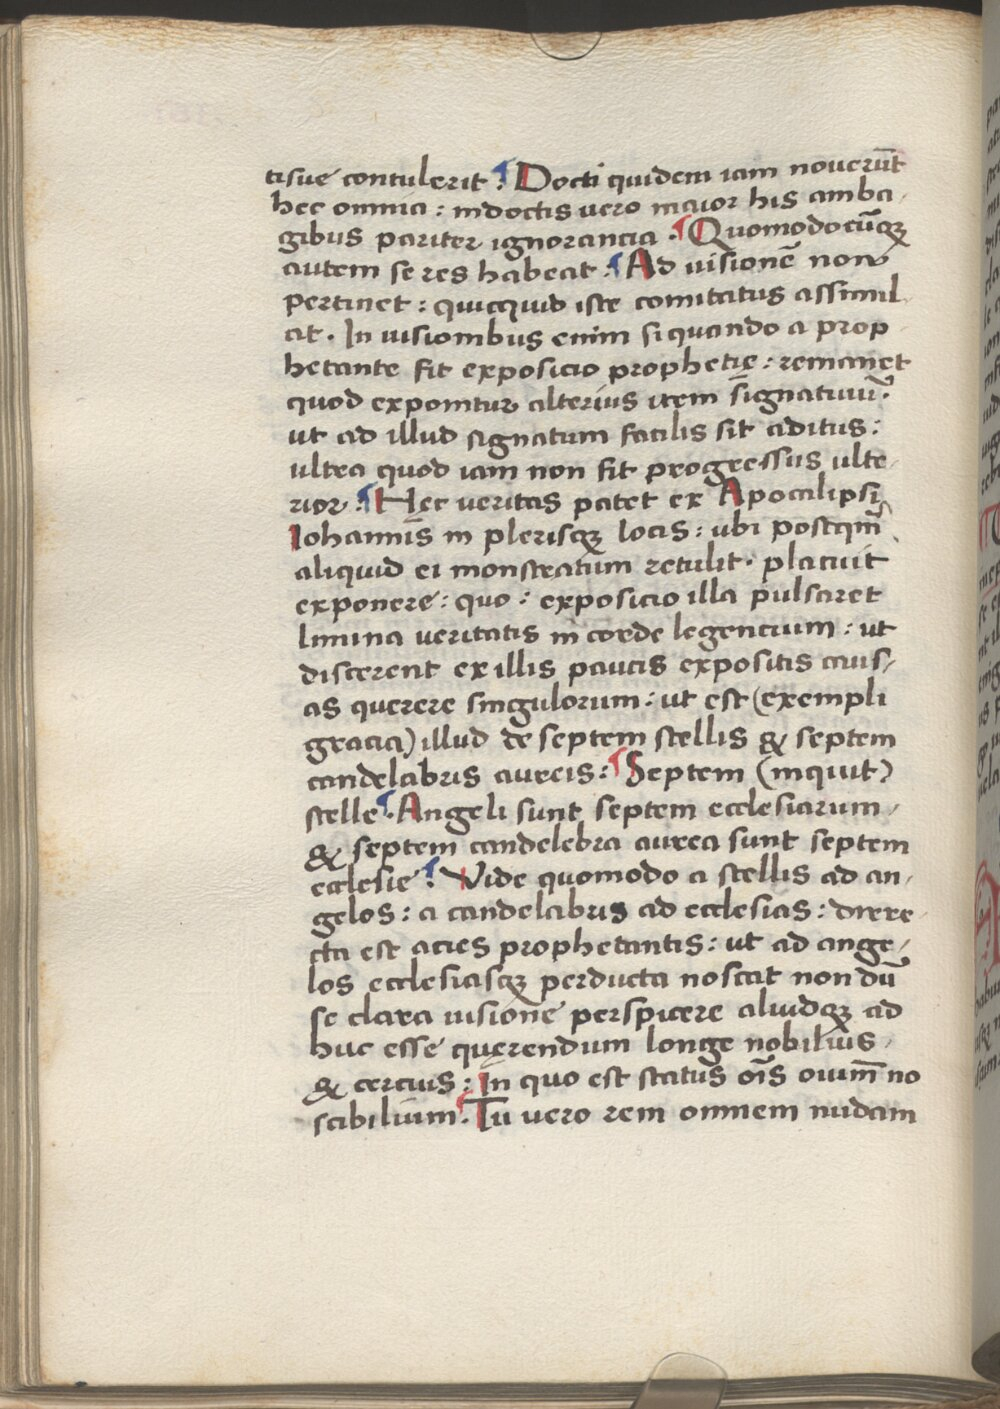 tisue contulerit : ¶ Docti quidem iam nouerūt
hec omnia : indoctis uero maior his amba-
gibus pariter ignorancia . ¶ Quomodocūqꝫ
autem se res habeat : ¶ Ad uisionē non
pertinet : quicquid iste comitatus assimil-
at . In uisionibus enim si quando a prop-
hetante fit exposicio prophetię : remanet
quod exponitur alterius item signatiuū :
ut ad illud signatum facilis sit aditus :
ultra quod iam non fit progressus ulte-
rior : ¶ Hec ueritas patet ex Apocalipsi
Iohannis in plerisqꝫ locis : ubi postqm̄
aliquid ei monstratum retulit . placuit
exponere : quo : exposicio illa pulsaret
limina ueritatis in corde legencium : ut
discerent ex illis paucis expositis caus-
as querere singulorum : ut est (exempli
gracia) illud de septem stellis & septem
candelabris aureis : ¶ Septem (inquit)
stelle ¶ . Angeli sunt septem ecclesiarum -
& septem candelebra aurea sunt septem
ecclesie : ¶ Vide quomodo a stellis ad an-
gelos : a candelabris ad ecclesias : direre-
cta est acies prophetantis : ut ad ange-
los ecclesiasqꝫ perducta noscat nondū
se clara uisione perspicere aliudqꝫ ad
huc esse quęrendum longe nobilius -
& cercius : In quo est status oīs ouim̄ no
scibilium . ¶ Tu uero rem omnem nudam